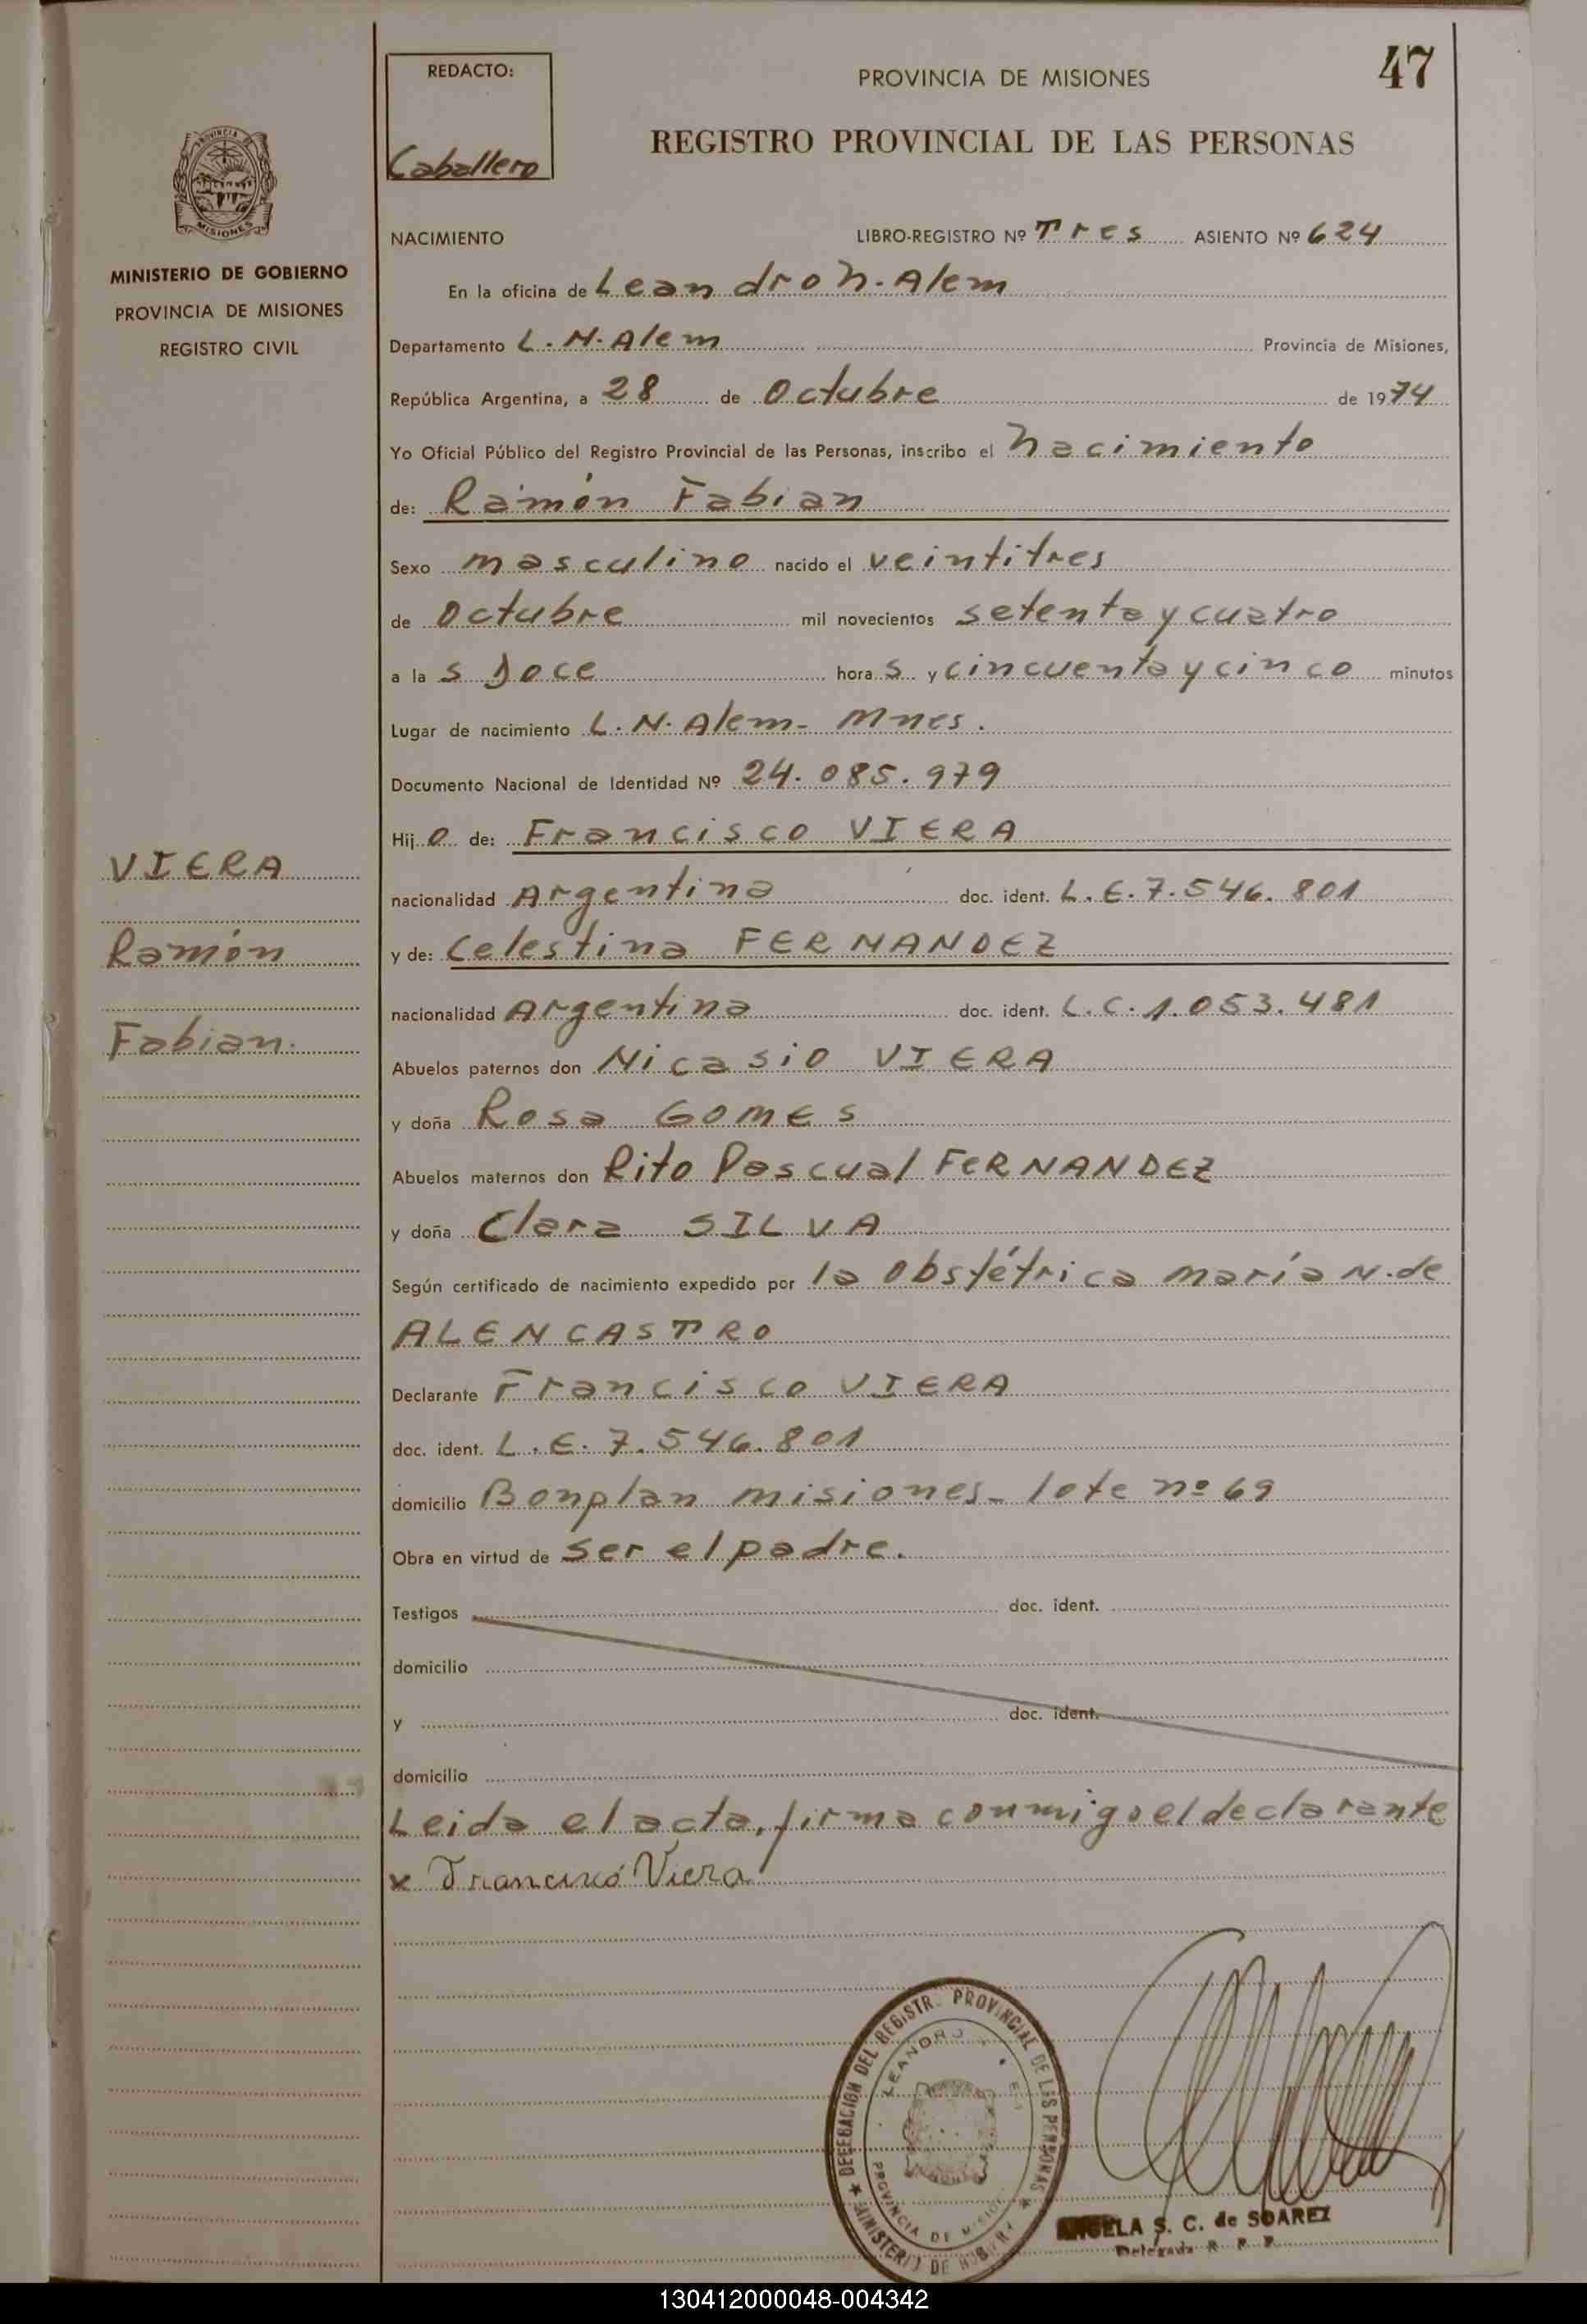 REDACTO:
Caballero
PROVINCIA DE MISIONES
47
REGISTRO PROVINCIAL DE LAS PERSONAS
PROVINCIA DE
MISIONES
MINISTERIO DE GOBIERNO
PROVINCIA DE MISIONES
REGISTRO CIVIL
VIERA
Ramón
Fabian.
NACIMIENTO LIBRO-REGISTRO Nº Tres ASIENTO Nº 624
En la oficina de Leandro N. Alem
Departamento L. N. Alem Provincia de Misiones,
República Argentina, a 28 de Octubre de 1974
Yo Oficial Público del Registro Provincial de las Personas, inscribo el Nacimiento
de: Ramón Fabian
Sexo masculino nacido el veintitres
de Octubre mil novecientos setenta y cuatro
a la s Doce hora s y cincuenta y cinco minutos
Lugar de nacimiento L. N. Alem - Mnes.
Documento Nacional de Identidad Nº 24.085.979
Hij o de: Francisco VIERA
nacionalidad Argentina doc. ident. L.E. 7.546.801
y de: Celestina FERNANDEZ
nacionalidad Argentina doc. ident. L.C. 1.053.481
Abuelos paternos don Nicasio VIERA
y doña Rosa GOMES
Abuelos maternos don Rito Pascual FERNANDEZ
y doña Clara SILVA
Según certificado de nacimiento expedido por la Obstétrica María N. de
ALENCASTRO
Declarante Francisco VIERA
doc. ident. L.E. 7.546.801
domicilio Bonplan misiones - lote nº 69
Obra en virtud de ser el padre.
Testigos doc. ident.
domicilio
y doc. ident.
domicilio
Leida el acta, firma conmigo el declarante
x Francisco Viera
DELEGACION DEL REGISTR. PROVINCIAL DE LAS PERSONAS
LEANDRO
PROVINCIA DE
MINISTERIO DE
ANGELA S. C. de SOAREZ
Delegada R. P. P.
130412000048-004342